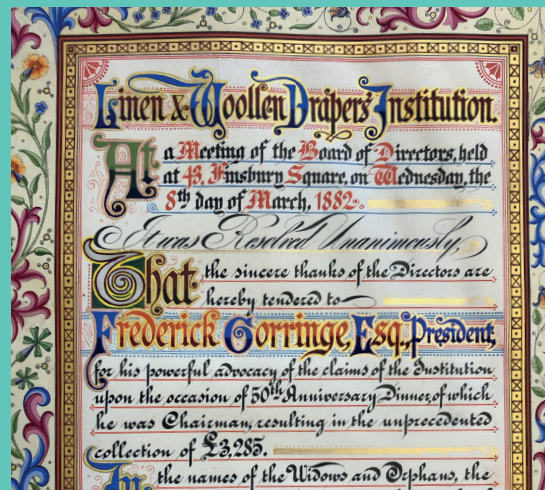 Linen & Woollen Drapers' Institution.
At a Meeting of the Board of Directors, held
at 43, Finsbury Square, on Wednesday, the
8th day of March, 1882.
It was Resolved Unanimously,
That the sincere thanks of the Directors are
hereby tendered to
Frederick Gorringe, Esq., President,
for his powerful advocacy of the claims of the Institution
upon the occasion of 50th Anniversary Dinner, of which
he was Chairman, resulting in the unprecedented
collection of £3,285.
In the names of the Widows and Orphans, the